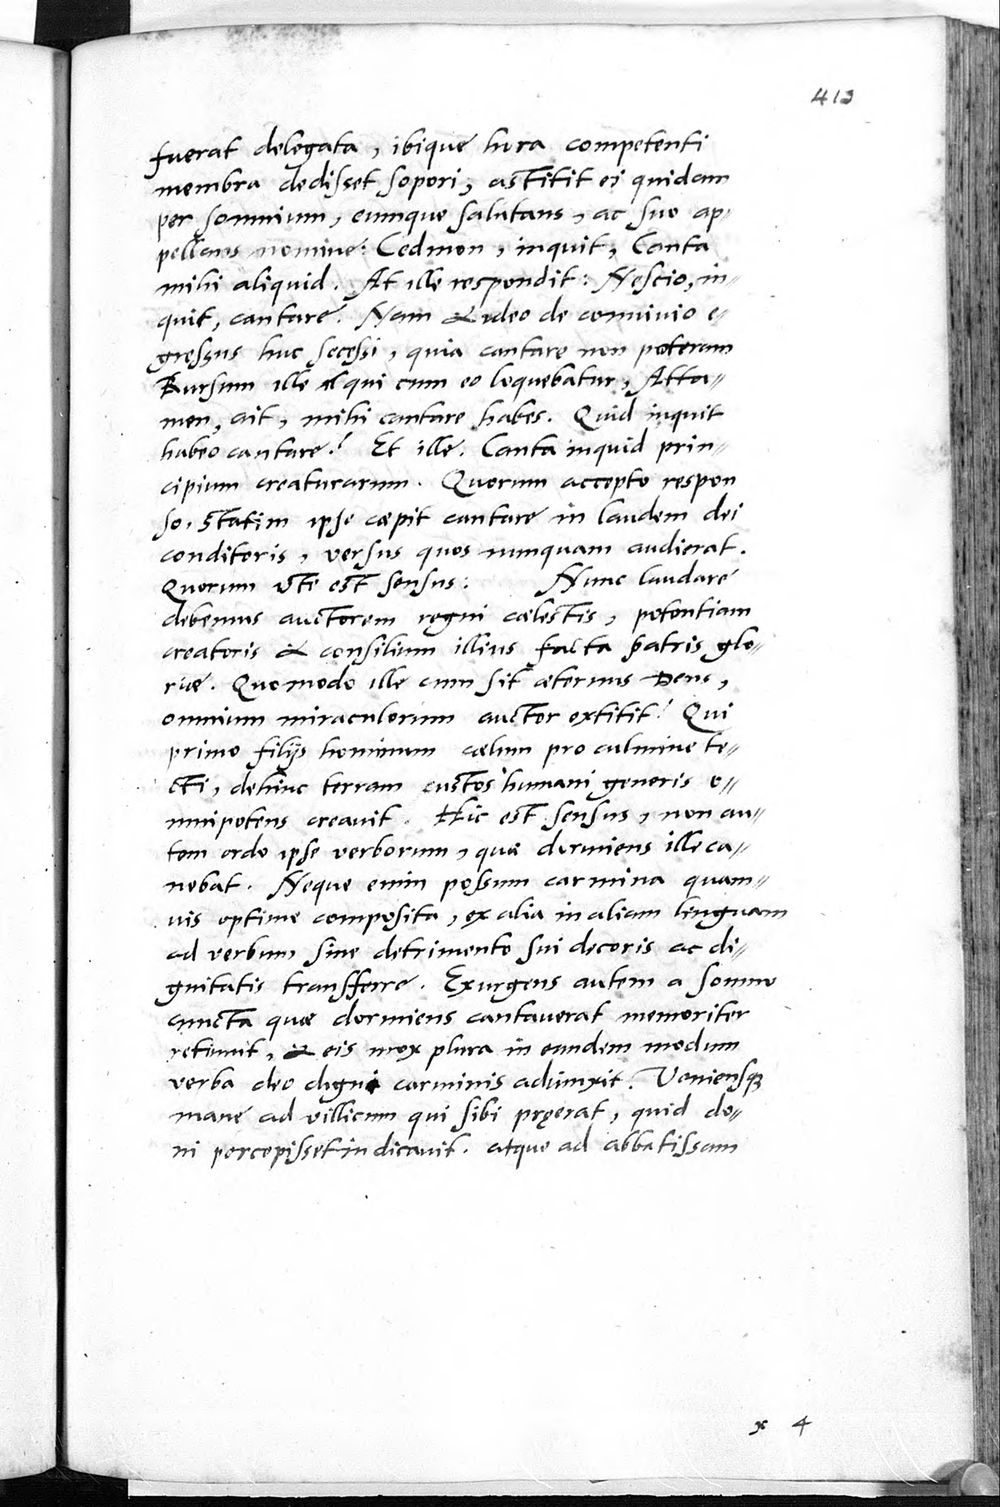 413
fuerat delegata, ibique hora competenti
membra dedisset sopori, astitit ei quidam
per somnium, eumque salutans, ac suo ap„
pellans nomine: Cedmon, inquit, Canta
mihi aliquid. At ille respondit: Nescio, in„
quit, cantare. Nam & ideo de conuiuio e„
gressus huc secessi, quia cantare non poteram
Rursum ille qui cum eo loquebatur, Atta„
men, ait, mihi cantare habes. Quid inquit
habeo cantare? Et ille. Canta inquid prin„
cipium creaturarum. Quorum accepto respon
so, statim ipse cœpit cantare in laudem dei
conditoris, versus quos nunquam audierat.
Quorum iste est sensus: Nunc laudare
debemus auctorem regni cælestis, potentiam
creatoris & consilium illius facta patris glo„
riæ. Quomodo ille cum sit æternus Deus,
omnium miraculorum auctor extitit? Qui
primo filijs hominum cælum pro culmine te„
cti, dehinc terram custos humani generis o„
mnipotens creauit. Hic est sensus, non au„
tem ordo ipse verborum, quæ dormiens ille ca„
nebat. Neque enim possum carmina quam„
uis optime composita, ex alia in aliam linguam
ad verbum sine detrimento sui decoris ac di„
gnitatis transferre. Exurgens autem a somno
cuncta quæ dormiens cantauerat memoriter
retinuit, & eis mox plura in eundem modum
verba deo digni carminis adiunxit. Veniensq3
mane ad villicum qui sibi pręerat, quid do„
ni percepisset indicauit. atque ad abbatissam
x 4